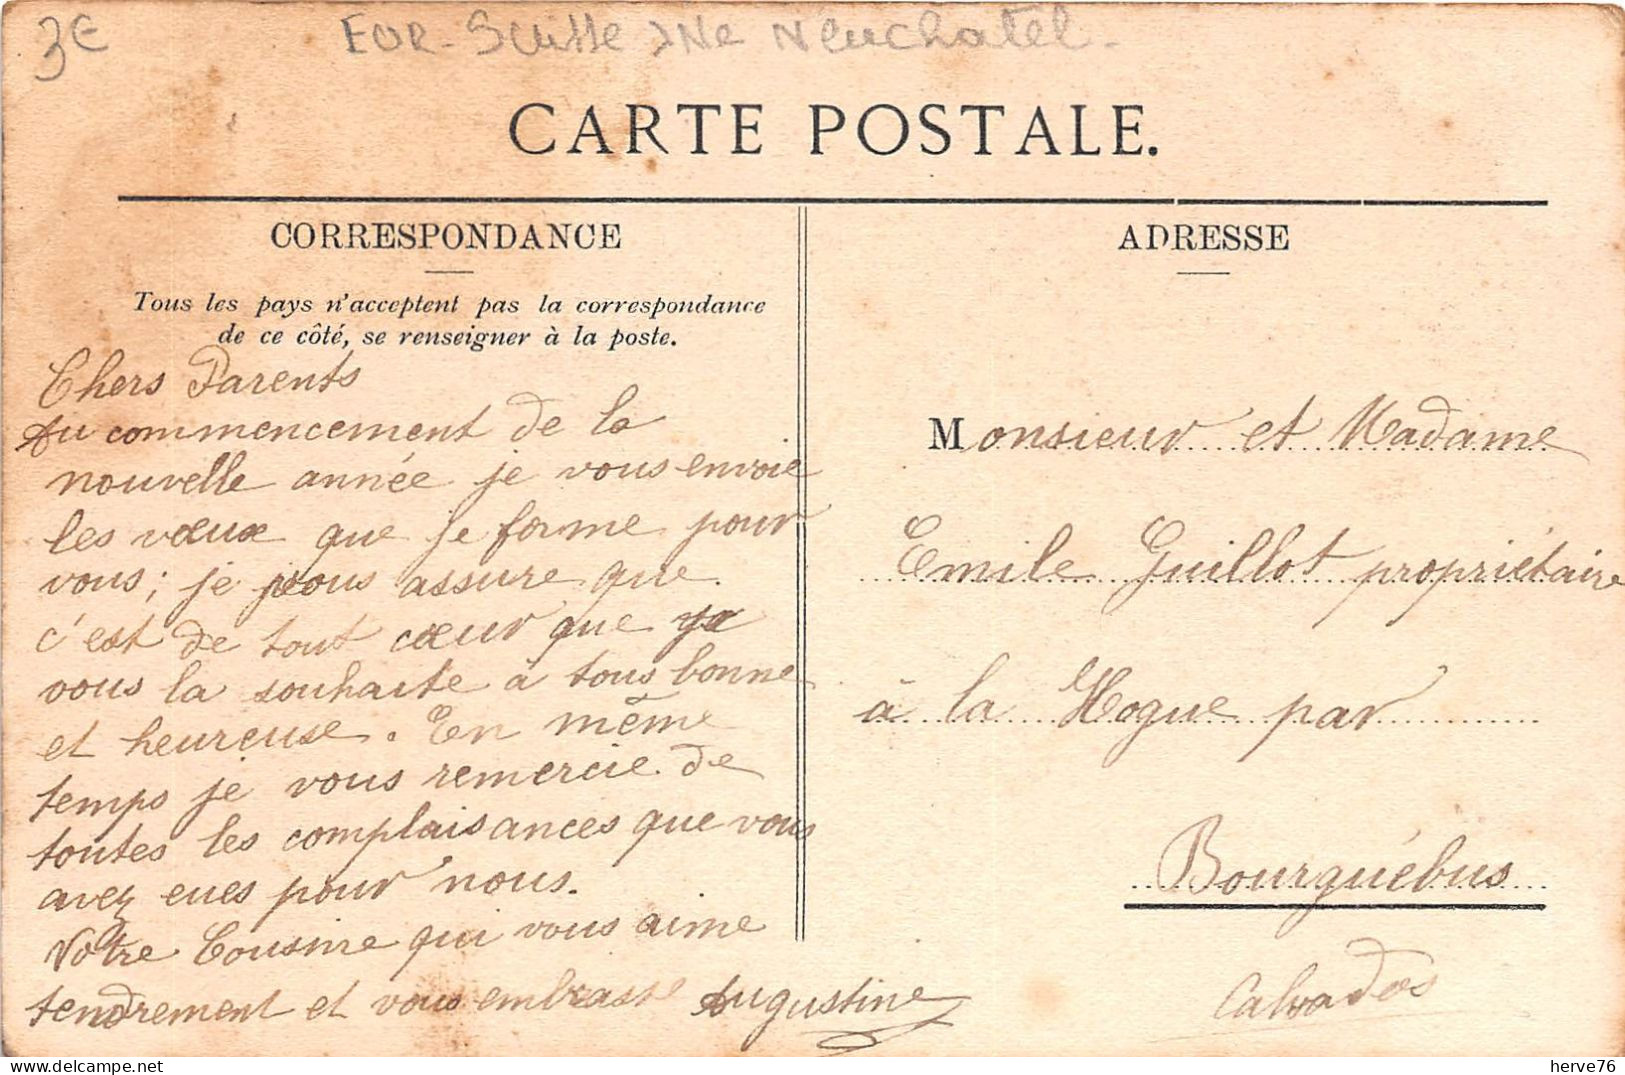 3€
EUR - Suisse Neuchatel -
CARTE POSTALE.
CORRESPONDANCE
Tous les pays n'acceptent pas la correspondance
de ce côté, se renseigner à la poste.
Chers Parents
Au commencement de la
nouvelle année je vous envoie
les vœux que je forme pour
vous ; je vous assure que
c'est de tout cœur que je
vous la souhaite à tous bonne
et heureuse. En même
temps je vous remercie de
toutes les complaisances que vous
avez eues pour nous.
Votre Cousine qui vous aime
tendrement et vous embrasse Augustine
ADRESSE
Monsieur et Madame
Emile Guillot propriétaire
à la Hogue par
Bourguébus
Calvados
https://www.delcampe.net
herve76